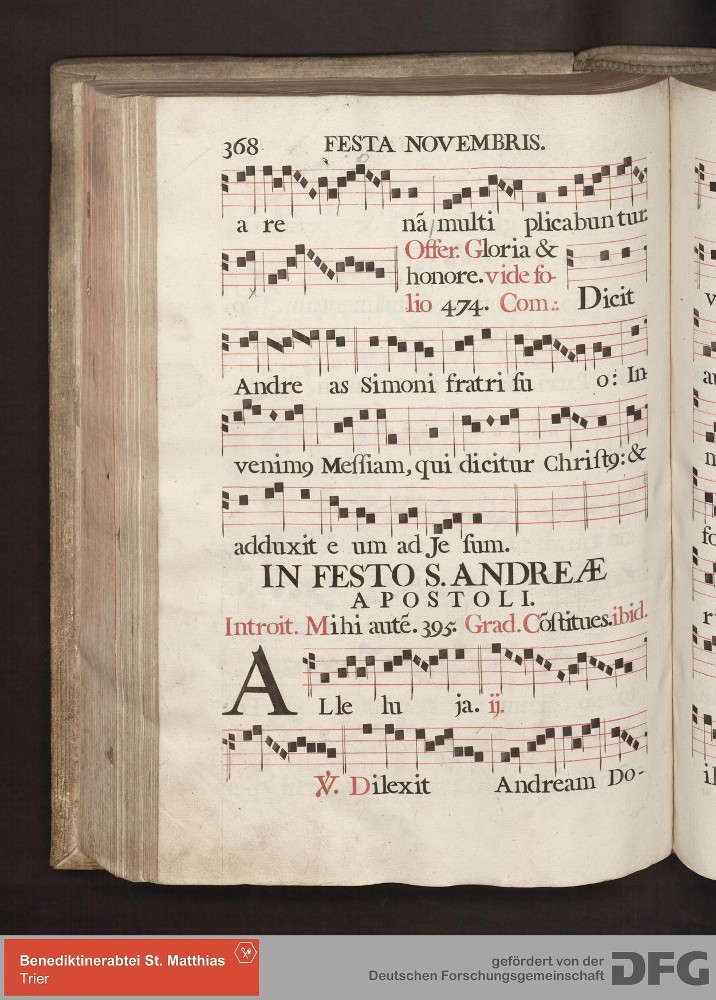 368 FESTA NOVEMBRIS.
a re nã multi plicabuntur.
Offer. Gloria &
honore. vide fo-
lio 474. Com.: Dicit
Andre as Simoni fratri su o: In-
venimꝯ Messiam, qui dicitur Christꝯ: &
adduxit e um ad Je sum.
IN FESTO S. ANDREÆ
APOSTOLI.
Introit. Mihi autẽ. 395. Grad. Cõstitues. ibid.
ALle lu ja. ij.
℣. Dilexit Andream Do-
Benediktinerabtei St. Matthias
Trier
gefördert von der
Deutschen Forschungsgemeinschaft
DFG